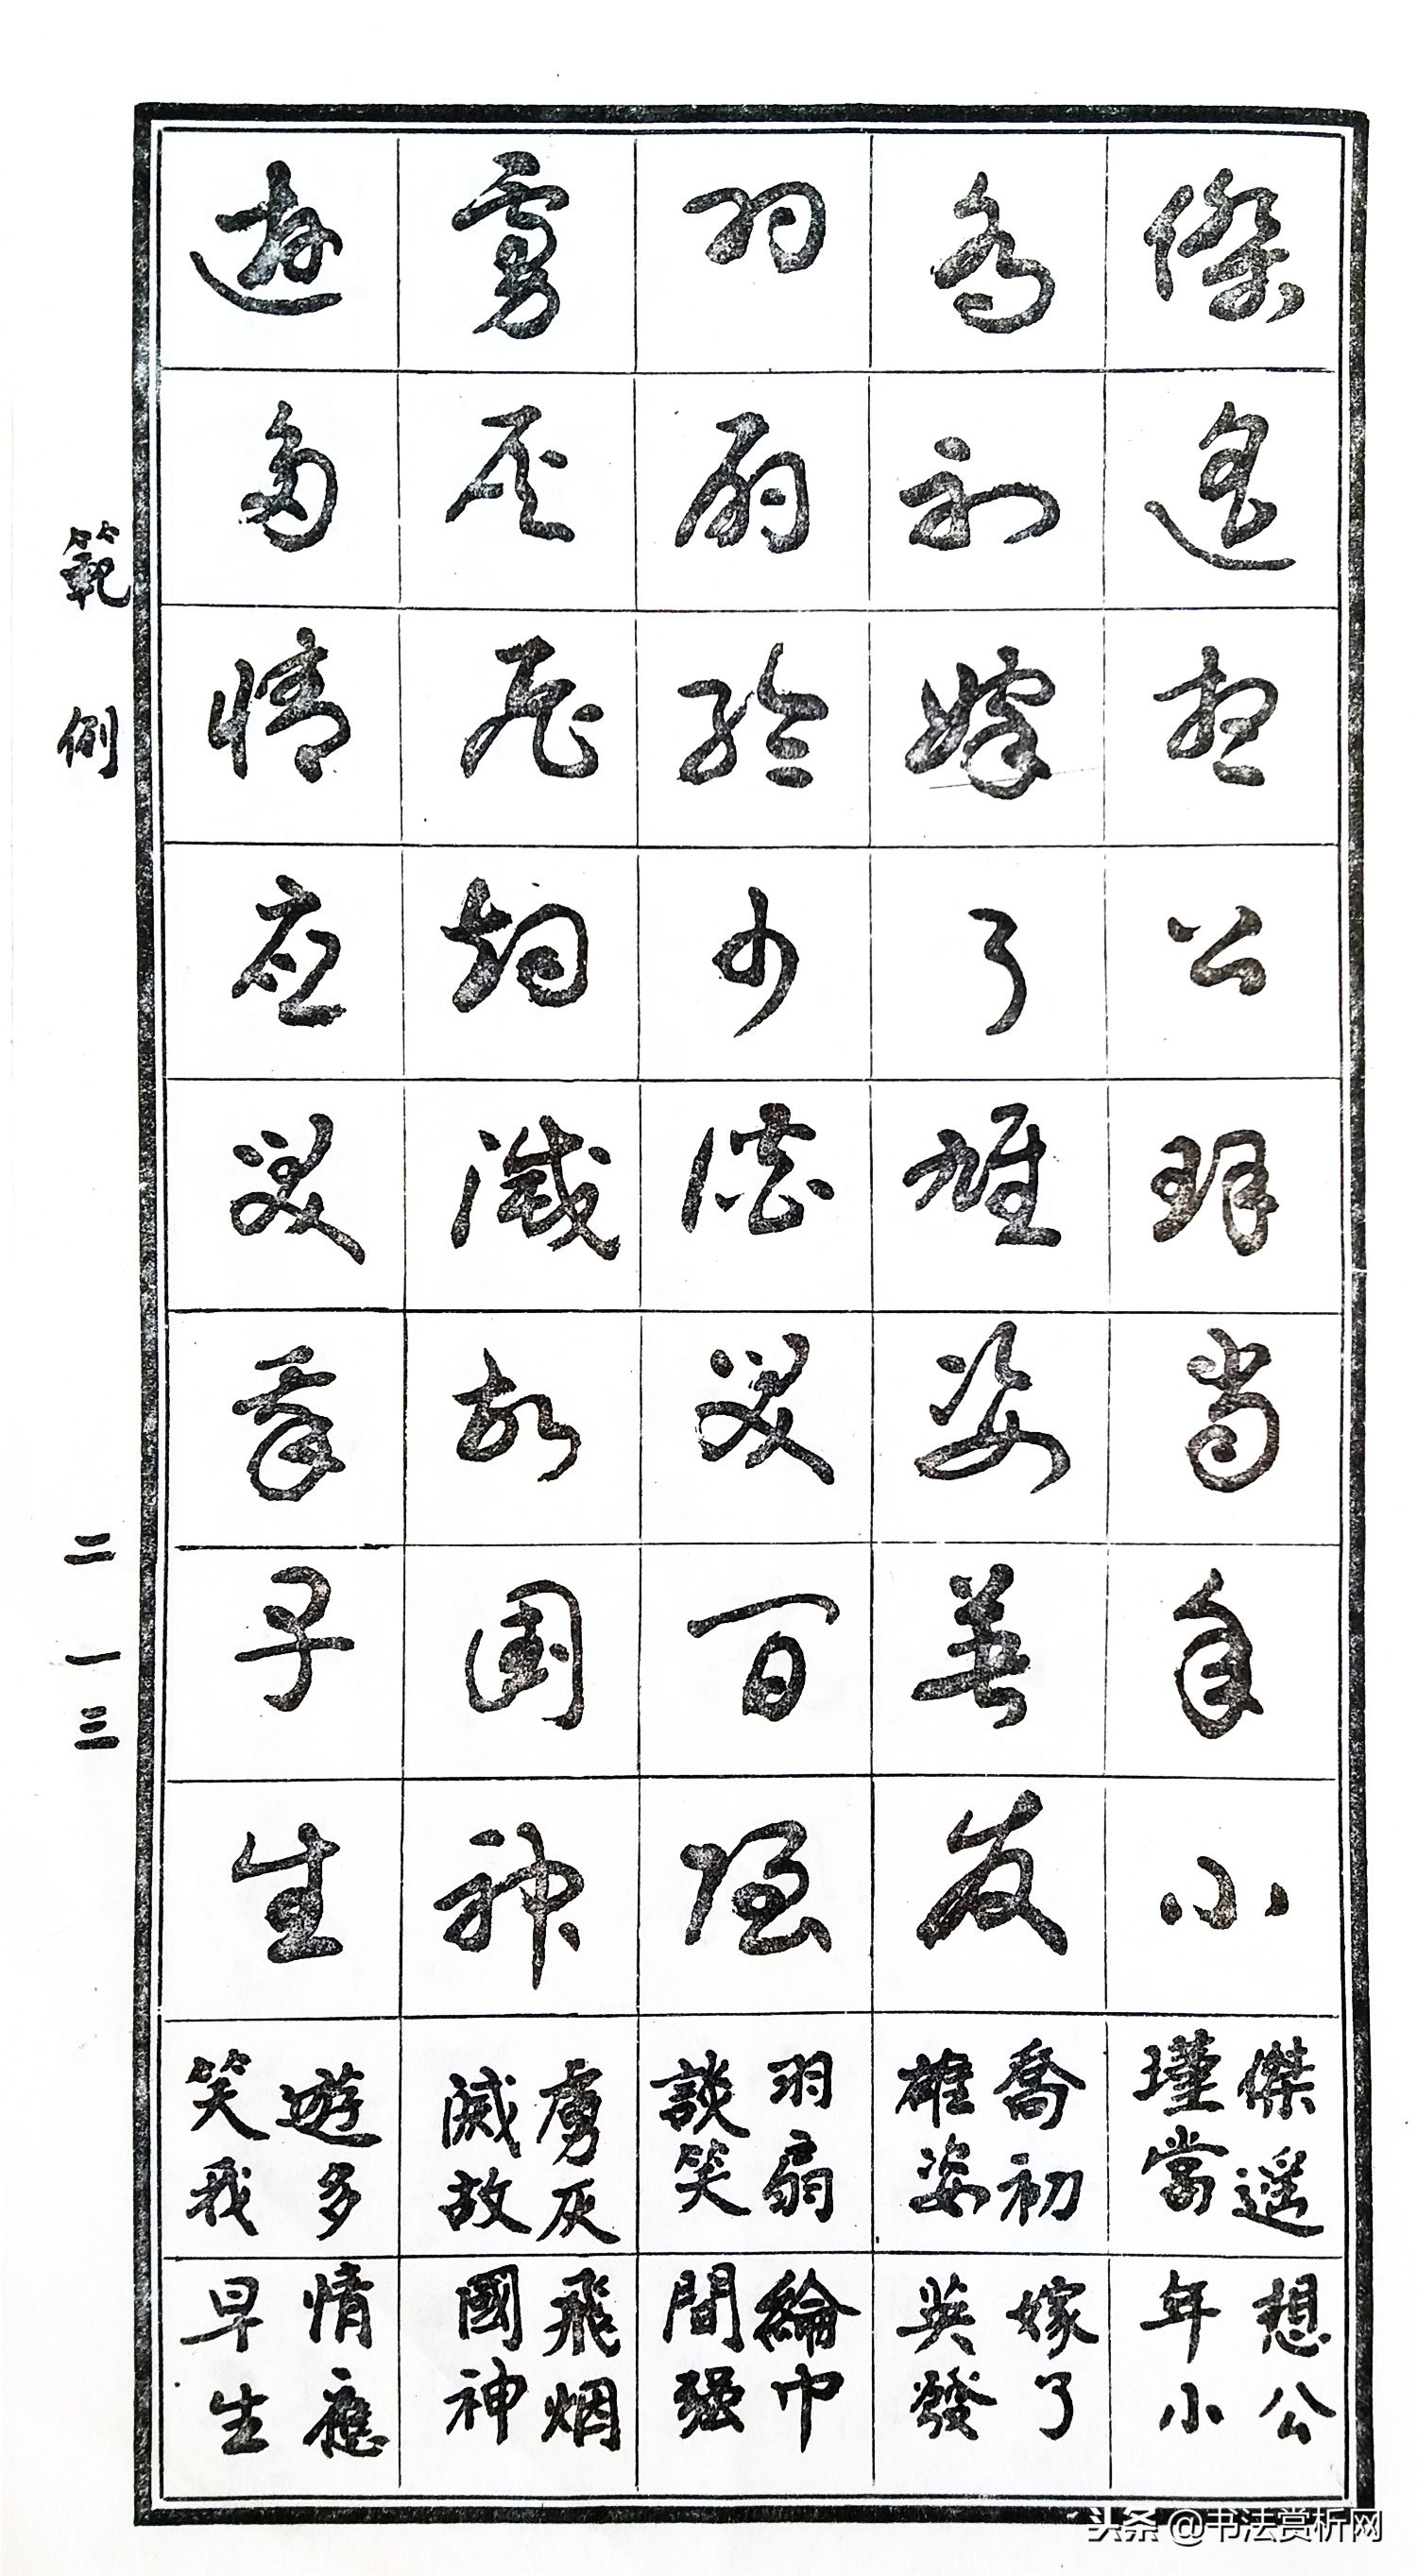 傑遥想公瑾當年小
傑遥想公
瑾當年小
喬初嫁了雄姿英發
喬初嫁了
雄姿英發
羽扇綸巾談笑間强
羽扇綸巾
談笑間强
虜灰飛烟滅故國神
虜灰飛烟
滅故國神
遊多情應笑我早生
遊多情應
笑我早生
範例
二一三
头条 @书法赏析网